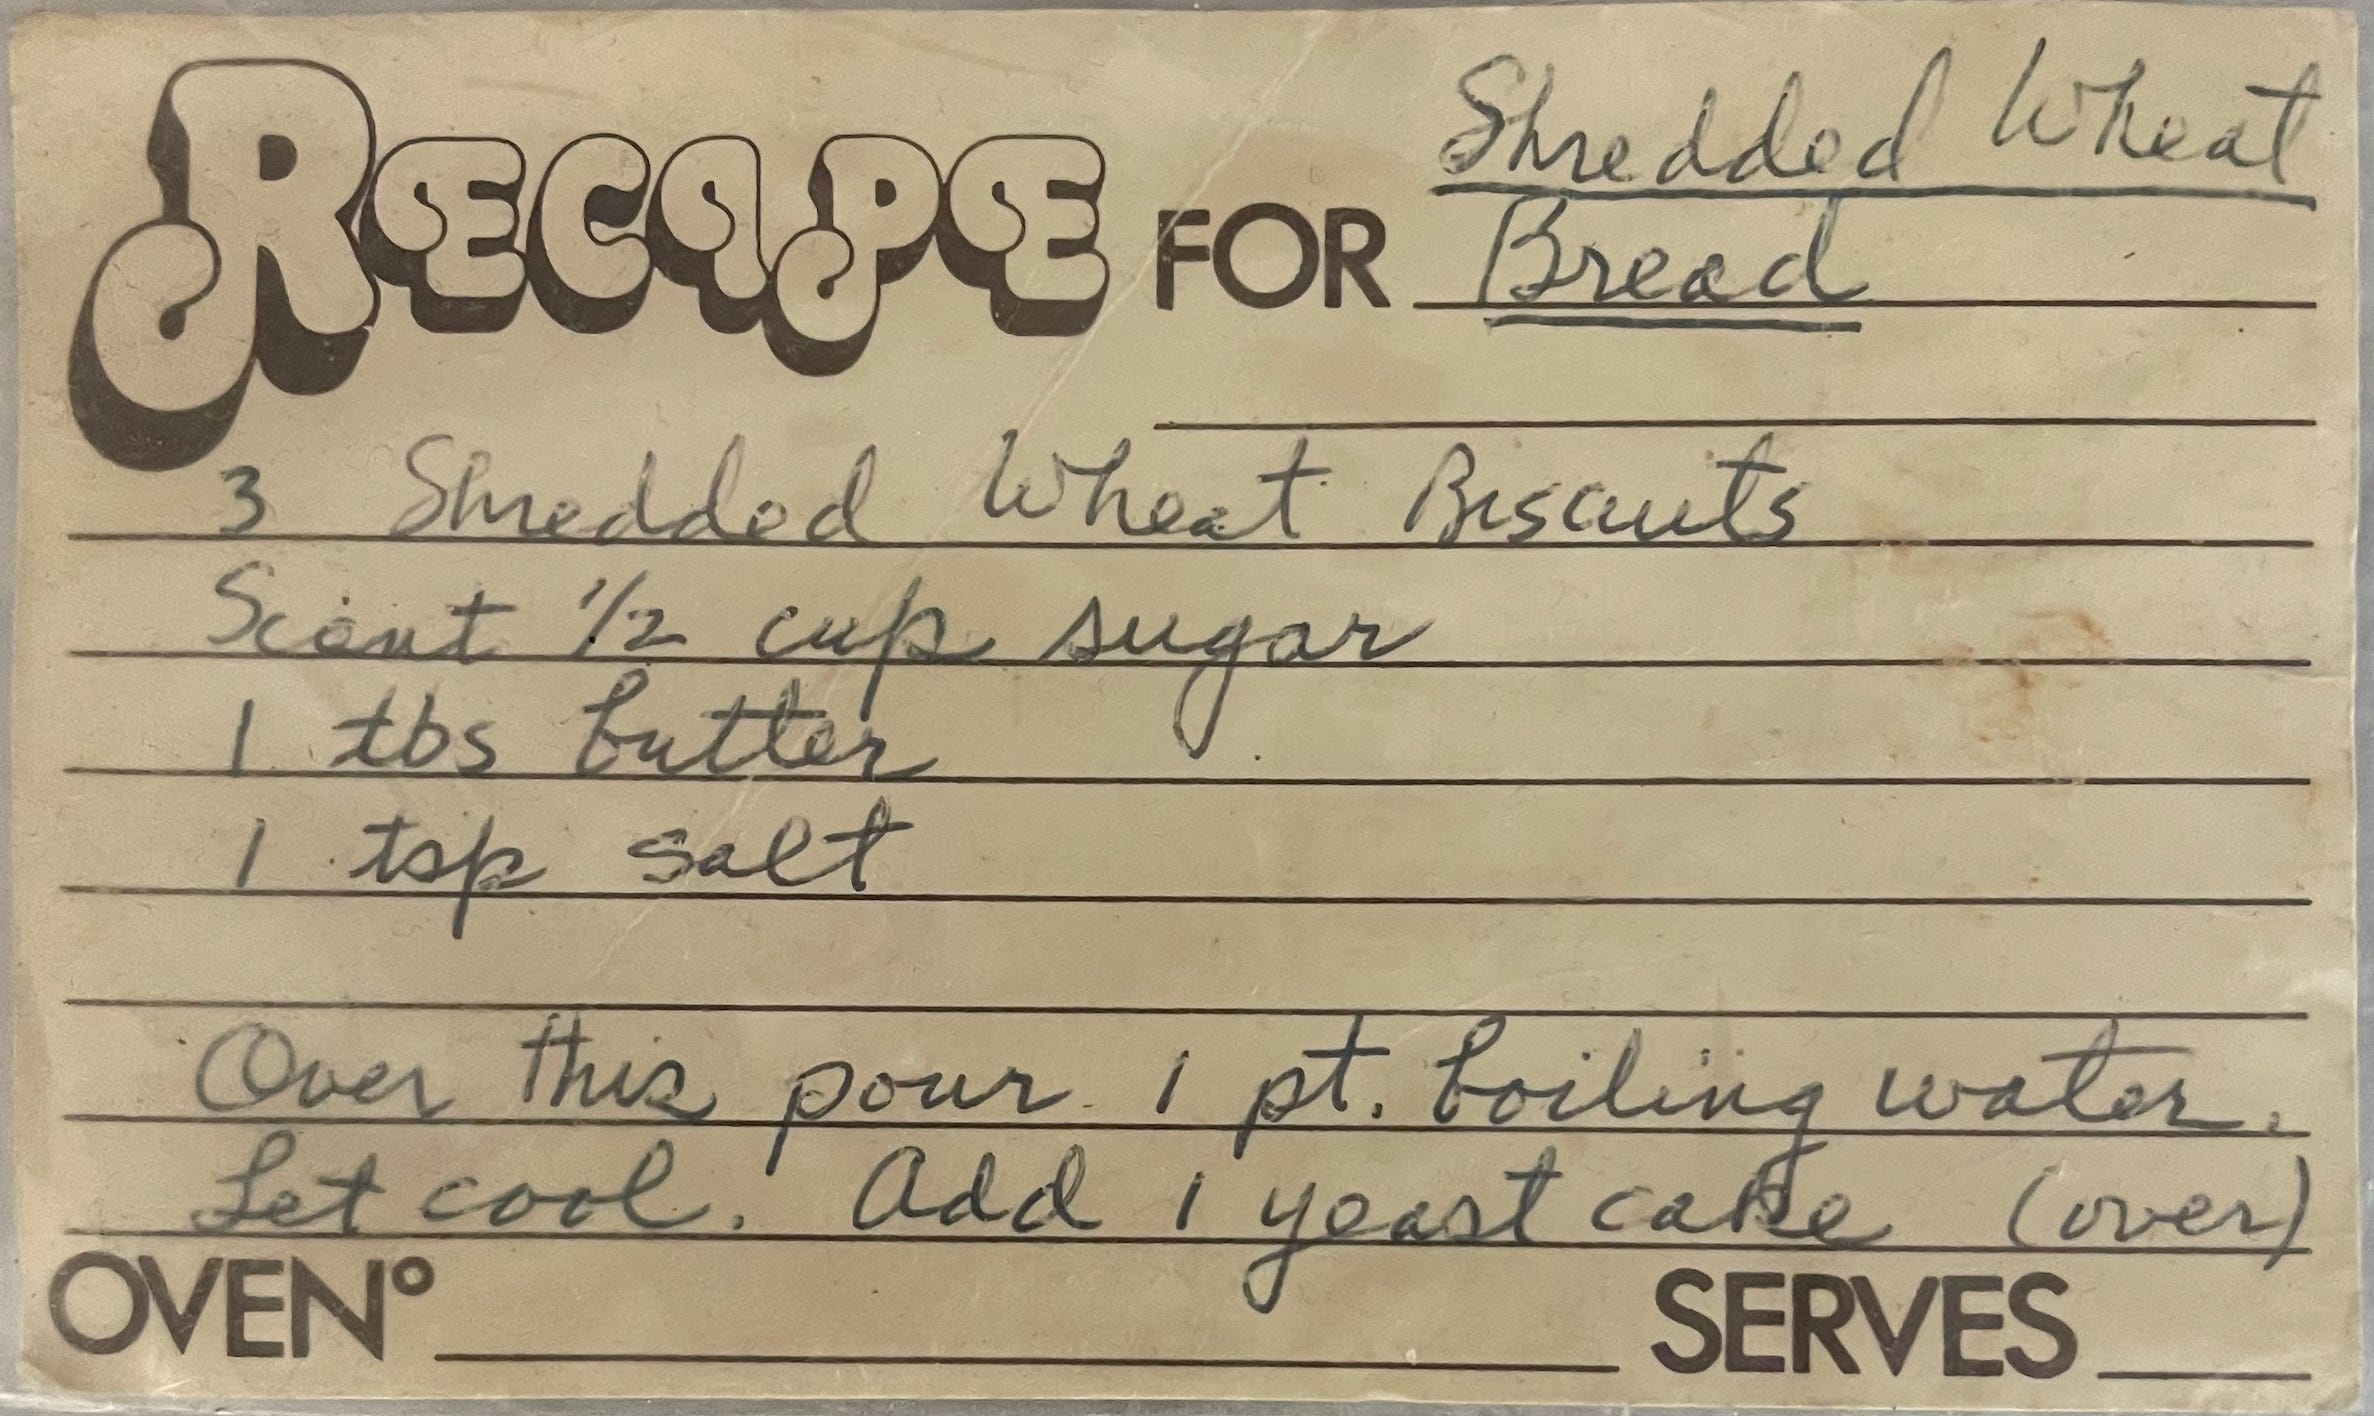 RECIPE FOR Shredded Wheat
Bread
3 Shredded Wheat Biscuits
Scant 1/2 cup sugar
1 tbs butter
1 tsp salt
Over this pour 1 pt. boiling water.
Let cool. Add 1 yeast cake (over)
OVEN° SERVES